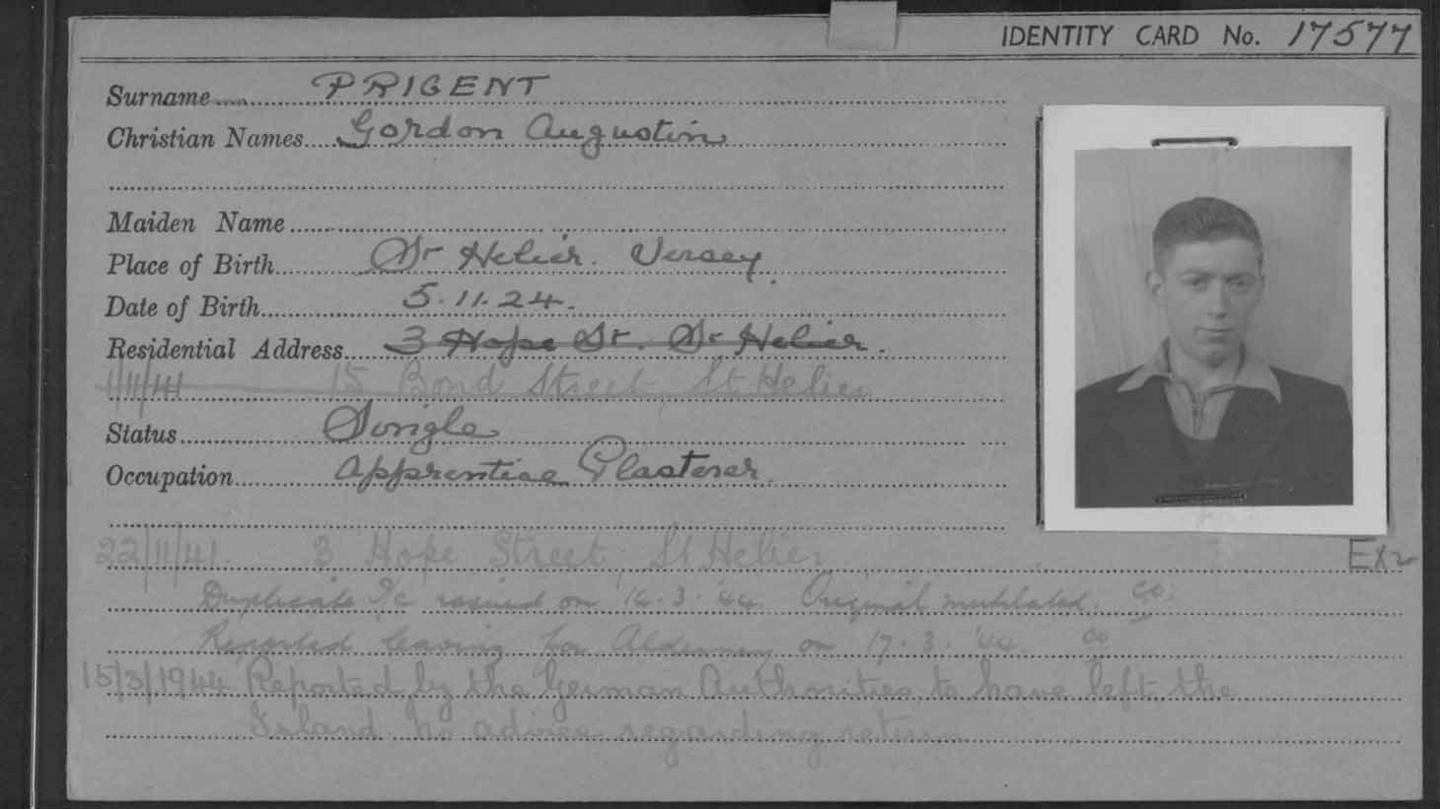 IDENTITY CARD No. 17577
Surname PRIGENT
Christian Names Gordon Augustin
Maiden Name
Place of Birth St Helier. Jersey.
Date of Birth 5.11.24.
Residential Address 3 Hope St. St Helier.
1/11/41 15 Bond Street, St Helier
Status Single
Occupation Apprentice Plasterer.
22/11/41. 3 Hope Street, St Helier
Ex2
Duplicate I/c issued on 14.3.'44. Original mutilated. CO.
Reported leaving for Alderney on 17.3.'44. CO
15/3/1944 Reported by the German Authorities to have left the
Island. no advice regarding return